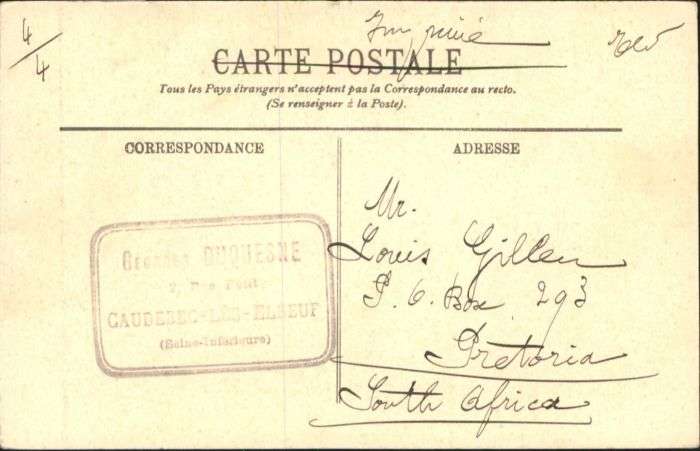 4/4
Imprimé
CARTE POSTALE
Tous les Pays étrangers n'acceptent pas la Correspondance au recto.
(Se renseigner à la Poste).
CORRESPONDANCE
ADRESSE
Mr.
Louis Gillen
P. O. Box 293
Pretoria
South Africa
DUQUESNE
2, Rue
CAUDEBEC-LÈS-ELBEUF
(Seine-Inférieure)